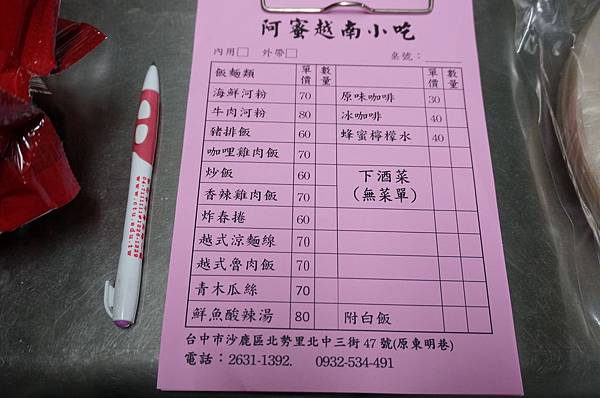 阿蜜越南小吃
內用□ 外帶□ 桌號：
飯麵類 單價 數量 單價 數量
海鮮河粉 70 原味咖啡 30
牛肉河粉 80 冰咖啡 40
豬排飯 60 蜂蜜檸檬水 40
咖哩雞肉飯 70
炒飯 60 下酒菜
香辣雞肉飯 70 (無菜單)
炸春捲 60
越式涼麵線 70
越式魯肉飯 70
青木瓜絲 70
鮮魚酸辣湯 80 附白飯
台中市沙鹿區北勢里北中三街47號(原東明巷)
電話：2631-1392. 0932-534-491